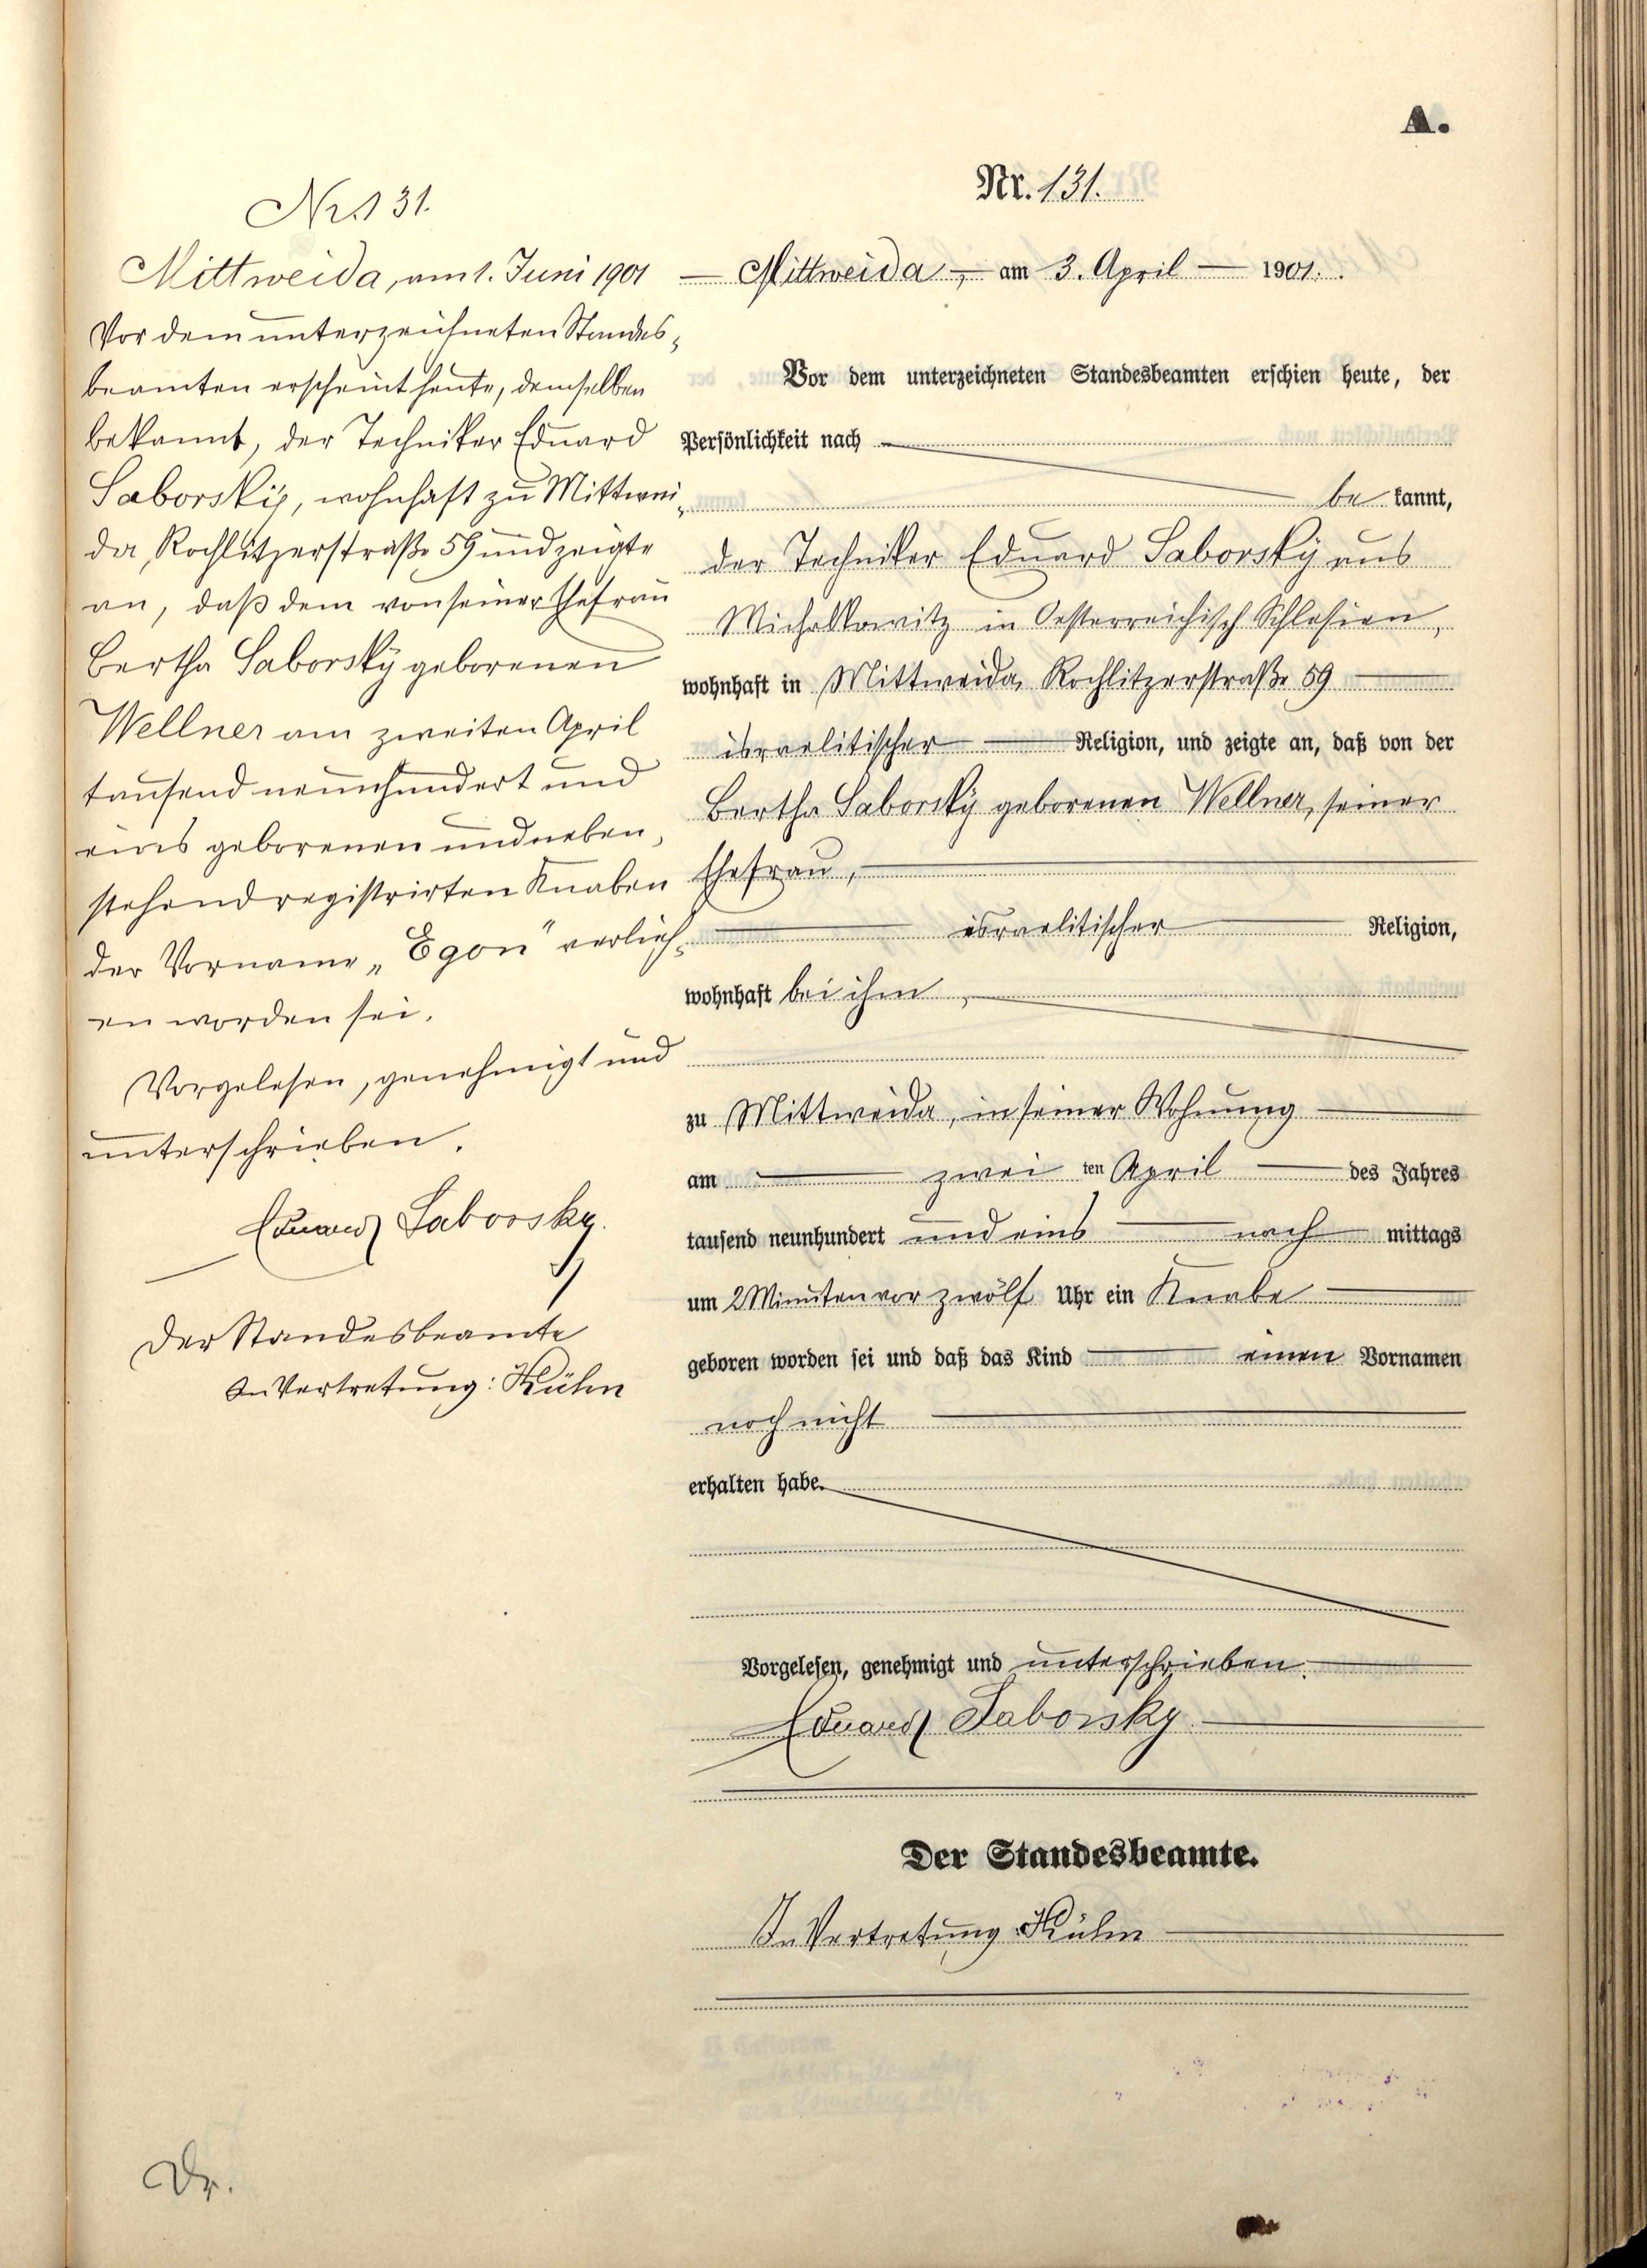 A.
Nr. 131.
Mittweida, am 1. Juni 1901
Vor dem unterzeichneten Standes-
beamten erscheint heute, demselben
bekannt, der Techniker Eduard
Saborsky, wohnhaft zu Mittwei-
da, Rochlitzerstraße 59 und zeigte
an, daß dem von seiner Ehefrau
Bertha Saborsky geborenen
Wellner am zweiten April
tausend neunhundert und
eins geborenen und neben-
stehend registrirten Knaben
der Vorname „Egon" verlieh-
en worden sei.
Vorgelesen, genehmigt und
unterschrieben.
Eduard Saborsky.
Der Standesbeamte
In Vertretung: Kühn
Dr.
Nr. 131.
Mittweida, am 3. April 1901.
Vor dem unterzeichneten Standesbeamten erschien heute, der
Persönlichkeit nach
be kannt,
der Techniker Eduard Saborsky aus
Michalkowitz in Oesterreichisch Schlesien,
wohnhaft in Mittweida, Rochlitzerstraße 59
israelitischer Religion, und zeigte an, daß von der
Bertha Saborsky geborenen Wellner, seiner
Ehefrau,
israelitischer Religion,
wohnhaft bei ihm,
zu Mittweida, in seiner Wohnung
am zwei ten April des Jahres
tausend neunhundert und eins nach mittags
um 2 Minuten vor zwölf Uhr ein Knabe
geboren worden sei und daß das Kind einen Vornamen
noch nicht
erhalten habe.
Vorgelesen, genehmigt und unterschrieben.
Eduard Saborsky
Der Standesbeamte.
In Vertretung Kühn